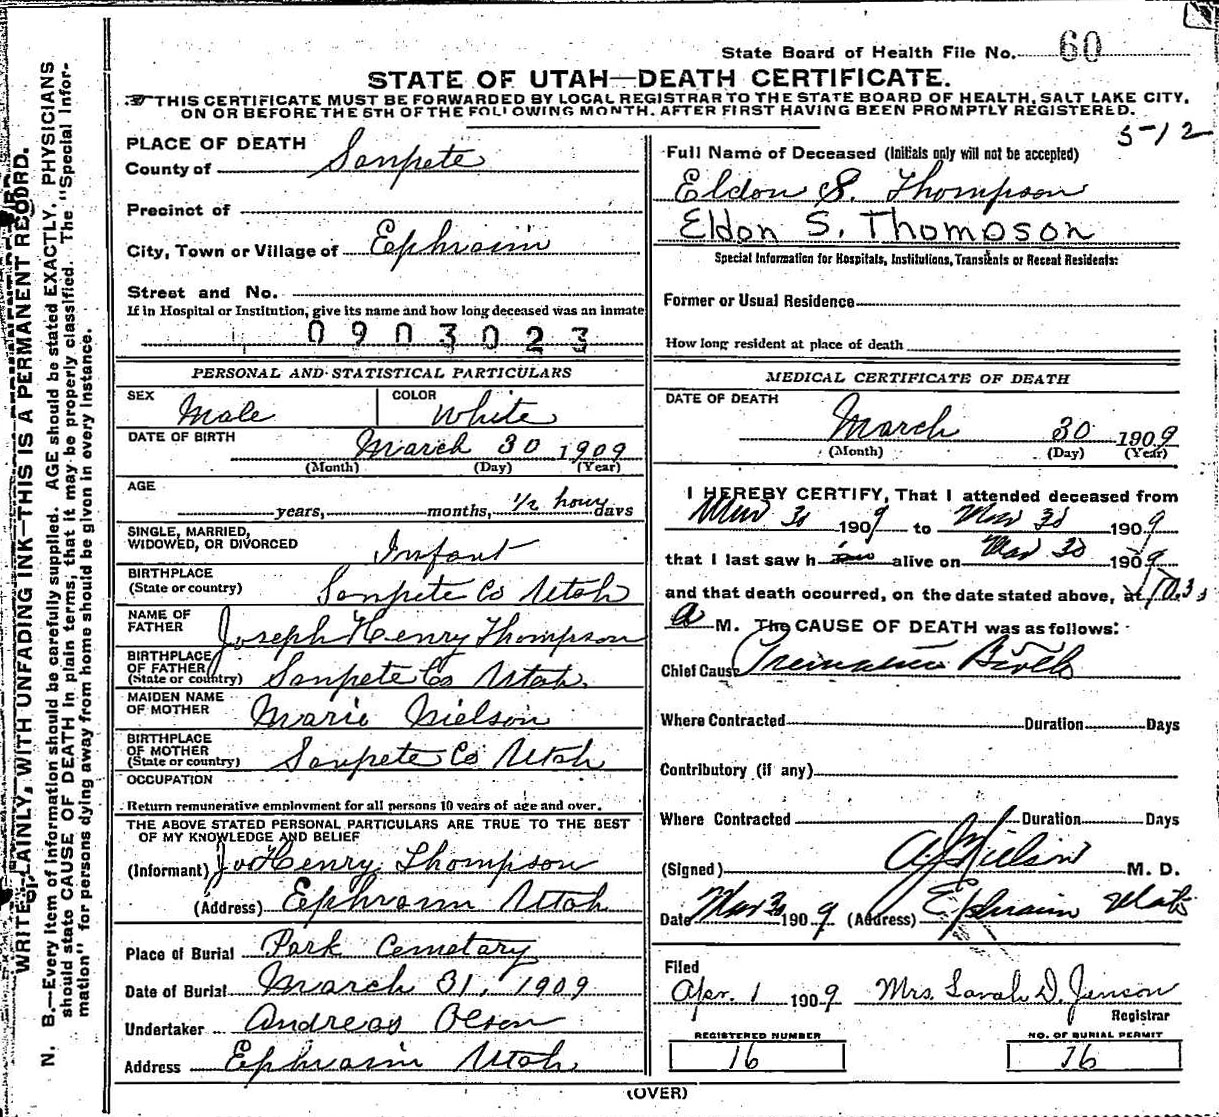 State Board of Health File No. 60
STATE OF UTAH—DEATH CERTIFICATE.
THIS CERTIFICATE MUST BE FORWARDED BY LOCAL REGISTRAR TO THE STATE BOARD OF HEALTH, SALT LAKE CITY,
ON OR BEFORE THE 5TH OF THE FOLLOWING MONTH. AFTER FIRST HAVING BEEN PROMPTLY REGISTERED.
5-12
PLACE OF DEATH
County of Sanpete
Precinct of
City, Town or Village of Ephraim
Street and No.
If in Hospital or Institution, give its name and how long deceased was an inmate
0903023
PERSONAL AND STATISTICAL PARTICULARS
SEX Male COLOR White
DATE OF BIRTH March 30 1909
(Month) (Day) (Year)
AGE
years, months, 1/2 hour days
SINGLE, MARRIED,
WIDOWED, OR DIVORCED Infant
BIRTHPLACE
(State or country) Sanpete Co Utah
NAME OF
FATHER Joseph Henry Thompson
BIRTHPLACE
OF FATHER
(State or country) Sanpete Co Utah.
MAIDEN NAME
OF MOTHER Marie Nielson
BIRTHPLACE
OF MOTHER
(State or country) Sanpete Co Utah
OCCUPATION
Return remunerative employment for all persons 10 years of age and over.
THE ABOVE STATED PERSONAL PARTICULARS ARE TRUE TO THE BEST
OF MY KNOWLEDGE AND BELIEF
(Informant) Jos Henry Thompson
(Address) Ephraim Utah
Place of Burial Park Cemetary
Date of Burial March 31, 1909
Undertaker Andreas Olsen
Address Ephraim Utah
Full Name of Deceased (Initials only will not be accepted)
Eldon S. Thompson
Eldon S. Thompson
Special Information for Hospitals, Institutions, Transients or Recent Residents:
Former or Usual Residence
How long resident at place of death
MEDICAL CERTIFICATE OF DEATH
DATE OF DEATH
March 30 1909
(Month) (Day) (Year)
I HEREBY CERTIFY, That I attended deceased from
Mar 30 1909 to Mar 30 1909
that I last saw h im alive on Mar 30 1909
and that death occurred, on the date stated above, at 10.3
a M. The CAUSE OF DEATH was as follows:
Chief Cause Premature Birth
Where Contracted Duration Days
Contributory (if any)
Where Contracted Duration Days
(Signed) Nielson M. D.
Date Mar 30 1909 (Address) Ephraim Utah
Filed
Apr. 1 1909 Mrs. Sarah D. Jenson
Registrar
REGISTERED NUMBER NO. OF BURIAL PERMIT
16 76
(OVER)
WRITE PLAINLY, WITH UNFADING INK—THIS IS A PERMANENT RECORD.
N. B.—Every item of information should be carefully supplied. AGE should be stated EXACTLY. PHYSICIANS
should state CAUSE OF DEATH in plain terms, that it may be properly classified. The "Special Infor-
mation" for persons dying away from home should be given in every instance.